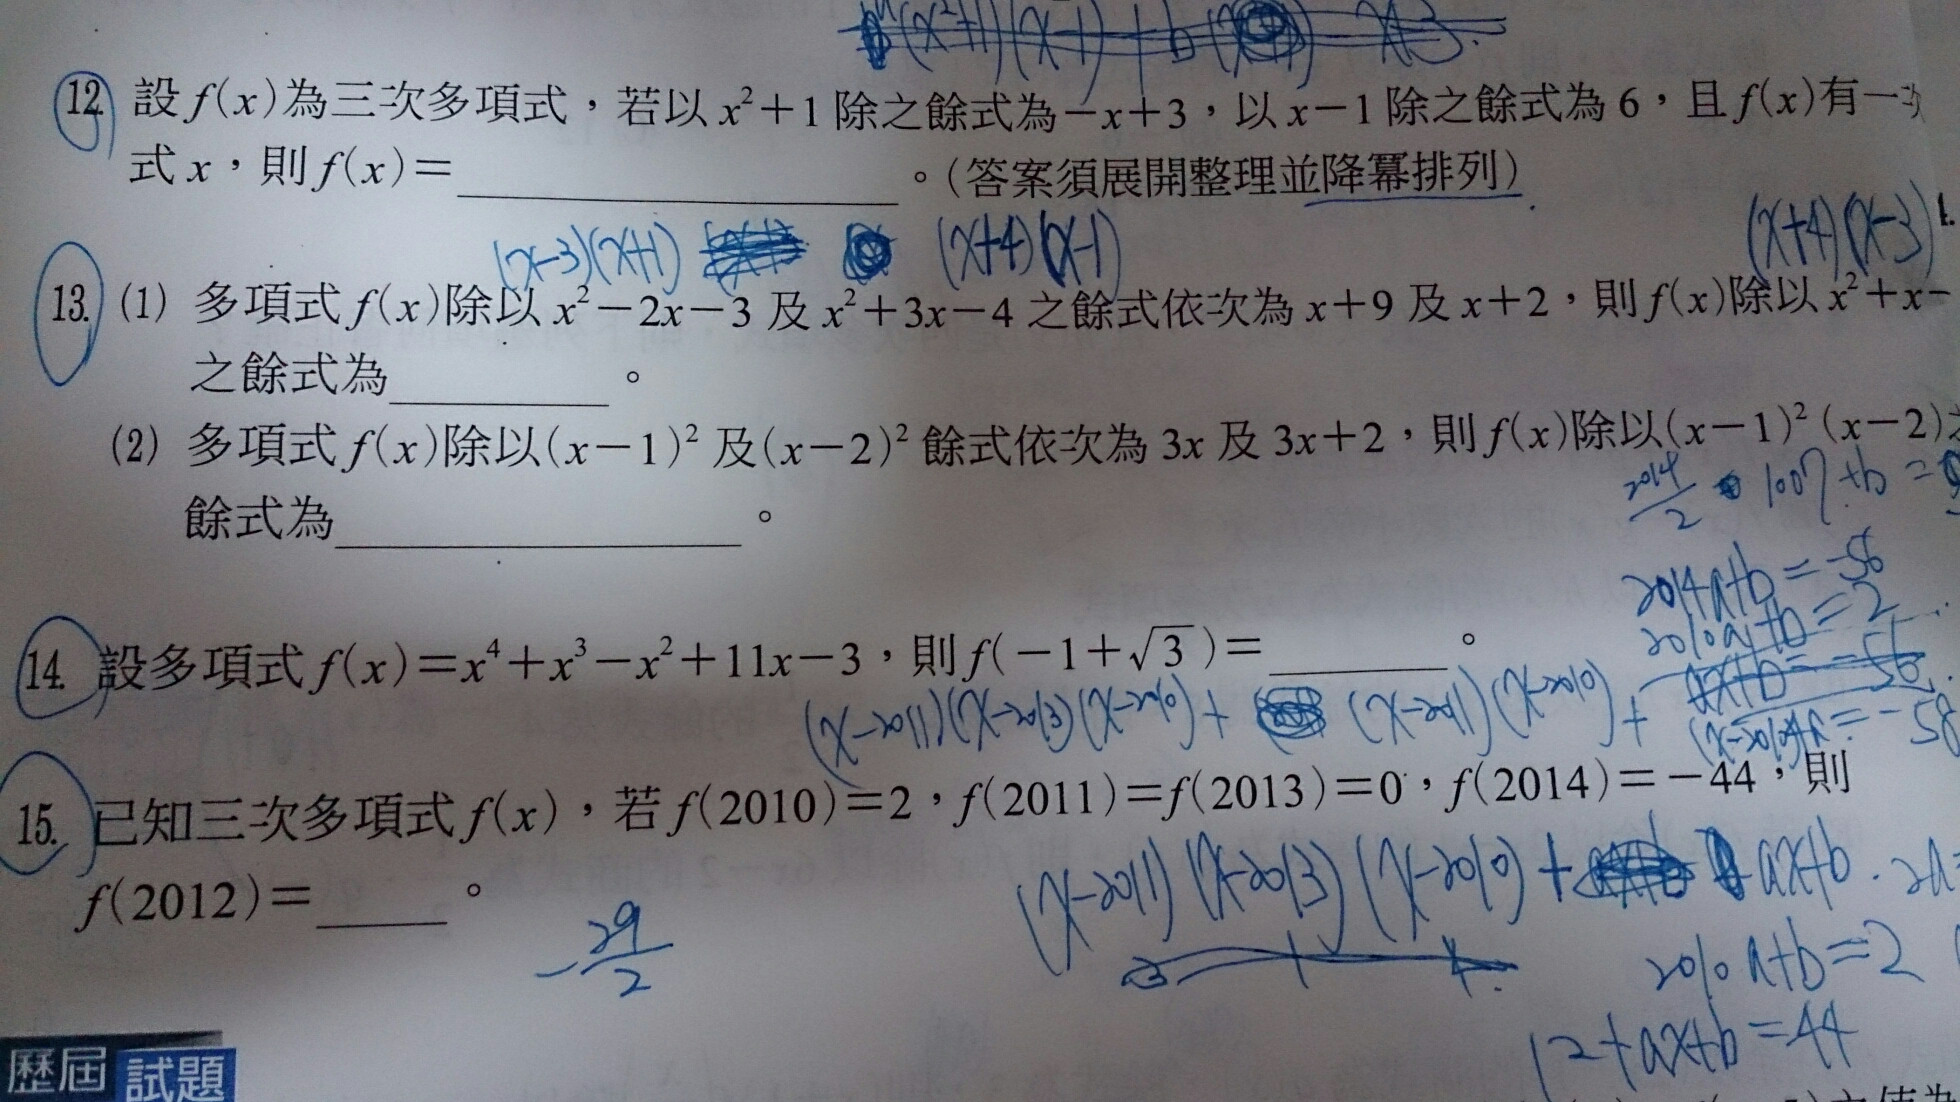 12. 設 f(x) 為三次多項式，若以 x²+1 除之餘式為 −x+3，以 x−1 除之餘式為 6，且 f(x) 有一
式 x，則 f(x)=________。(答案須展開整理並降冪排列)
(x-3)(x+1) (x+4)(x-1) (x+4)(x-3)
13. (1) 多項式 f(x) 除以 x²−2x−3 及 x²+3x−4 之餘式依次為 x+9 及 x+2，則 f(x) 除以 x²+x−
之餘式為________。
(2) 多項式 f(x) 除以 (x−1)² 及 (x−2)² 餘式依次為 3x 及 3x+2，則 f(x) 除以 (x−1)²(x−2)
2014/2 1007+b=
餘式為________。
2014a+b=-56
2010a+b=2
14. 設多項式 f(x)=x⁴+x³−x²+11x−3，則 f(−1+√3)=________。
ax+b=-56
(x-2011)(x-2013)(x-2010)+ (x-2011)(x-2010)+
=-58
15. 已知三次多項式 f(x)，若 f(2010)=2，f(2011)=f(2013)=0，f(2014)=−44，則
(x-2011)(x-2013)(x-2010)+ ax+b
f(2012)=________。
-29/2
2010a+b=2
12+ax+b=44
歷屆 試題